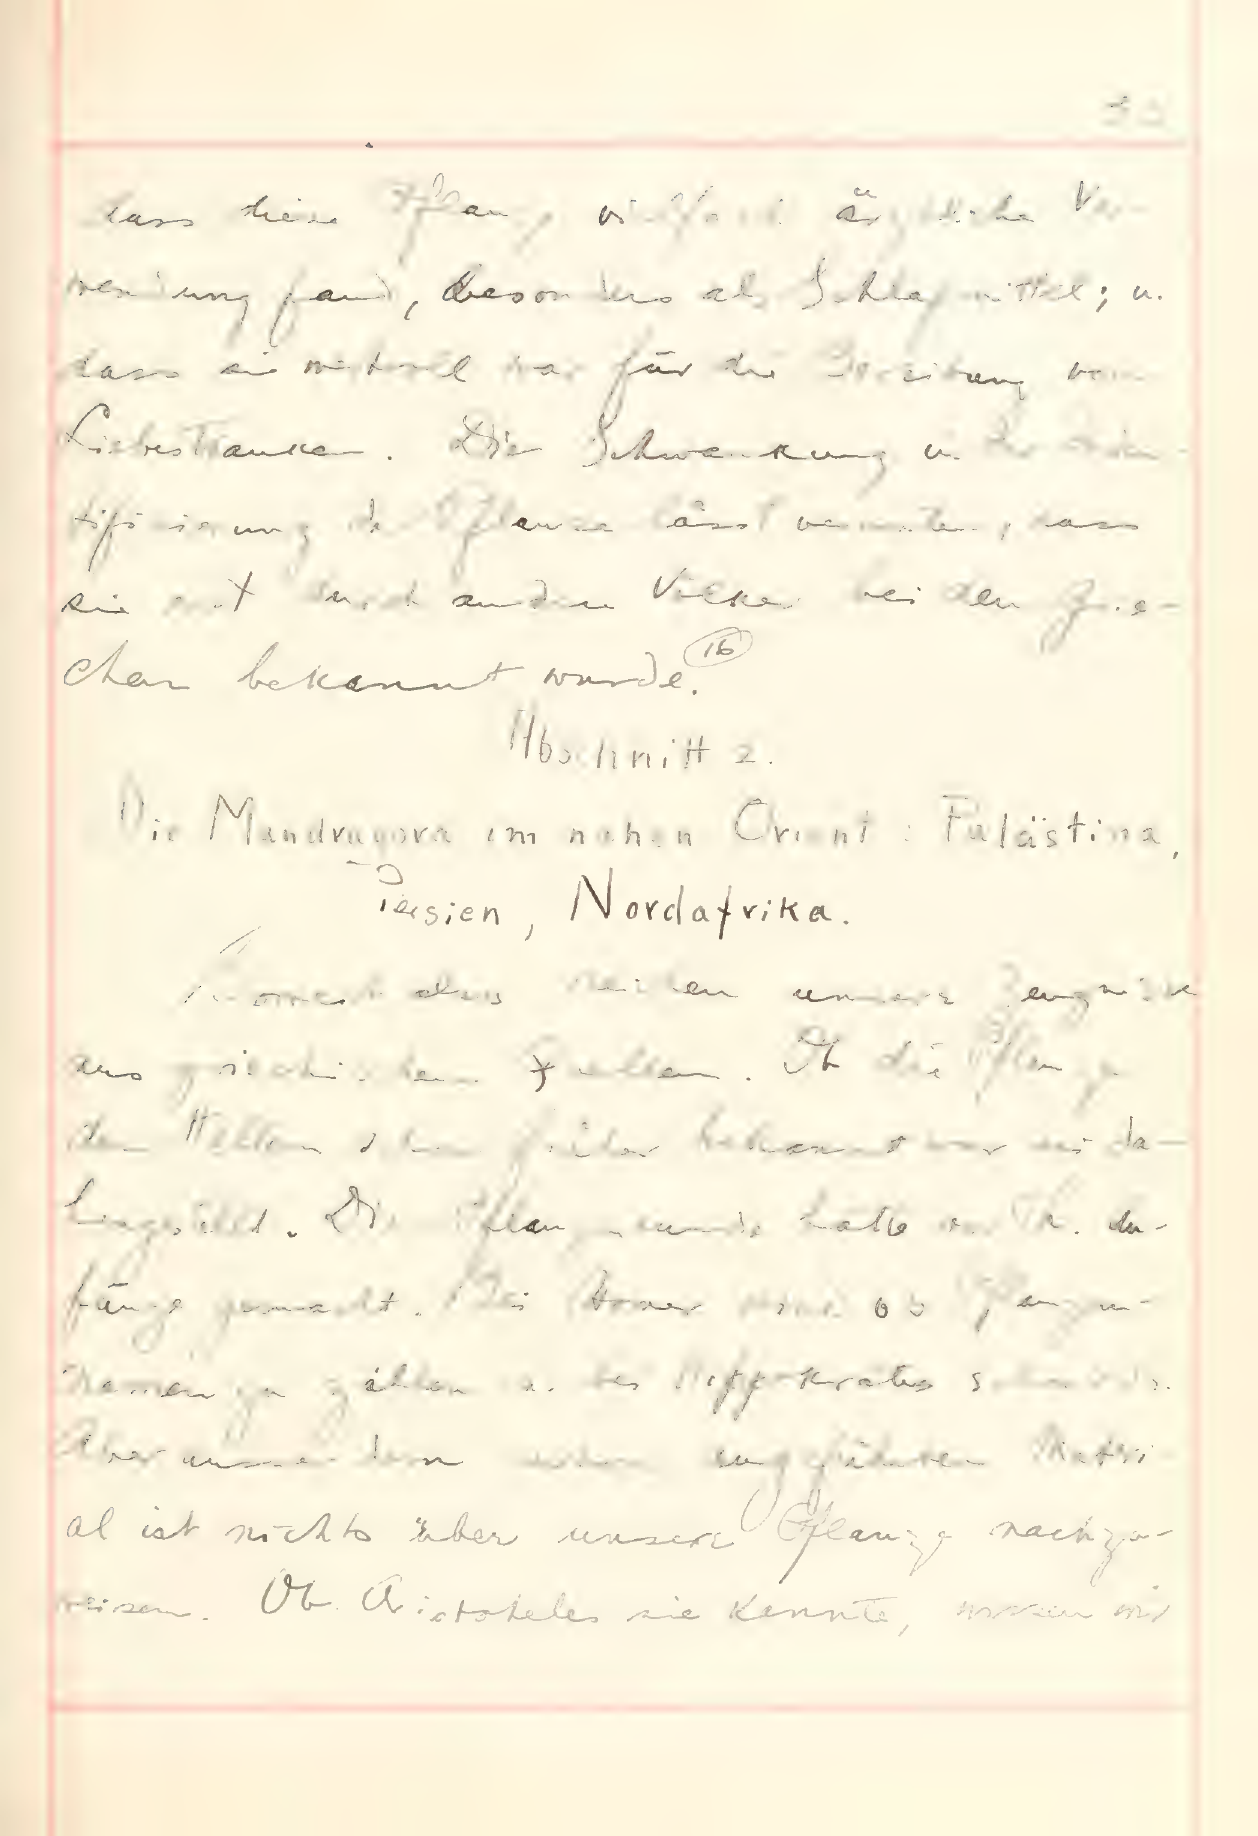 dass diese Pflanze vielfach ärztliche Ver-
wendung fand, besonders als Schlafmittel; u.
dass sie wertvoll war für die Bereitung von
Liebestranken. Die Schwankung in der Iden-
tifizierung der Pflanze lässt vermuten, dass
sie erst durch andere Völker bei den Grie-
chen bekannt wurde. (16)
Abschnitt 2.
Die Mandragora im nahen Orient: Palästina,
Persien, Nordafrika.
unsere Zeugnisse
aus griechischen Quellen. Ob die Pflanze
den Hellenen schon früher bekannt war sei da-
hingestellt. Die Pflanzenkunde hatte vor Th. An-
fänge gemacht. Bei Homer sind 63 Pflanzen-
namen zu zählen u. bei Hippokrates
Aber ausser dem schon angeführten Materi-
al ist nichts über unsere Pflanze nachzu-
weisen. Ob Aristoteles sie kannte, wissen wir